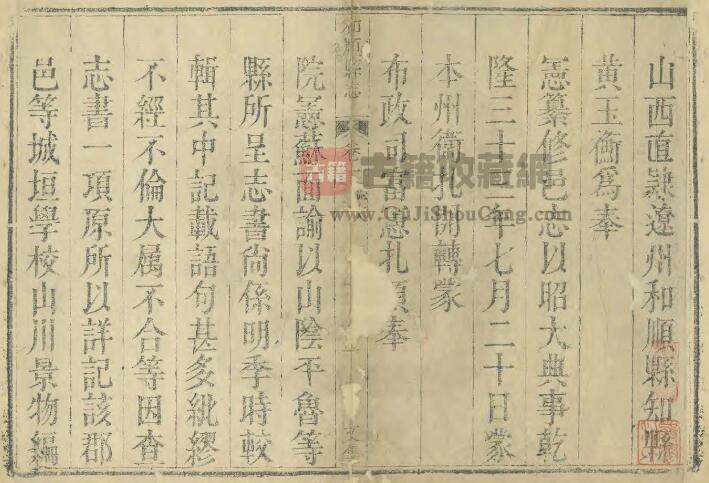 山西直隸遼州和順縣知縣
黃玉衡為奉
憲纂修邑志以昭大典事乾
隆三十三年七月二十日蒙
本州衛扎開轉蒙
布政司富憲扎須奉
和順縣志
卷
文集
院憲蘇面諭以山陰平魯等
縣所呈志書尚係明季時較
輯其中記載語句甚多紕繆
不經不倫大属不合等因查
志書一項原所以詳記該郡
邑等城垣學校山川景物編
古籍 古籍收藏網
www.GuJiShouCang.com